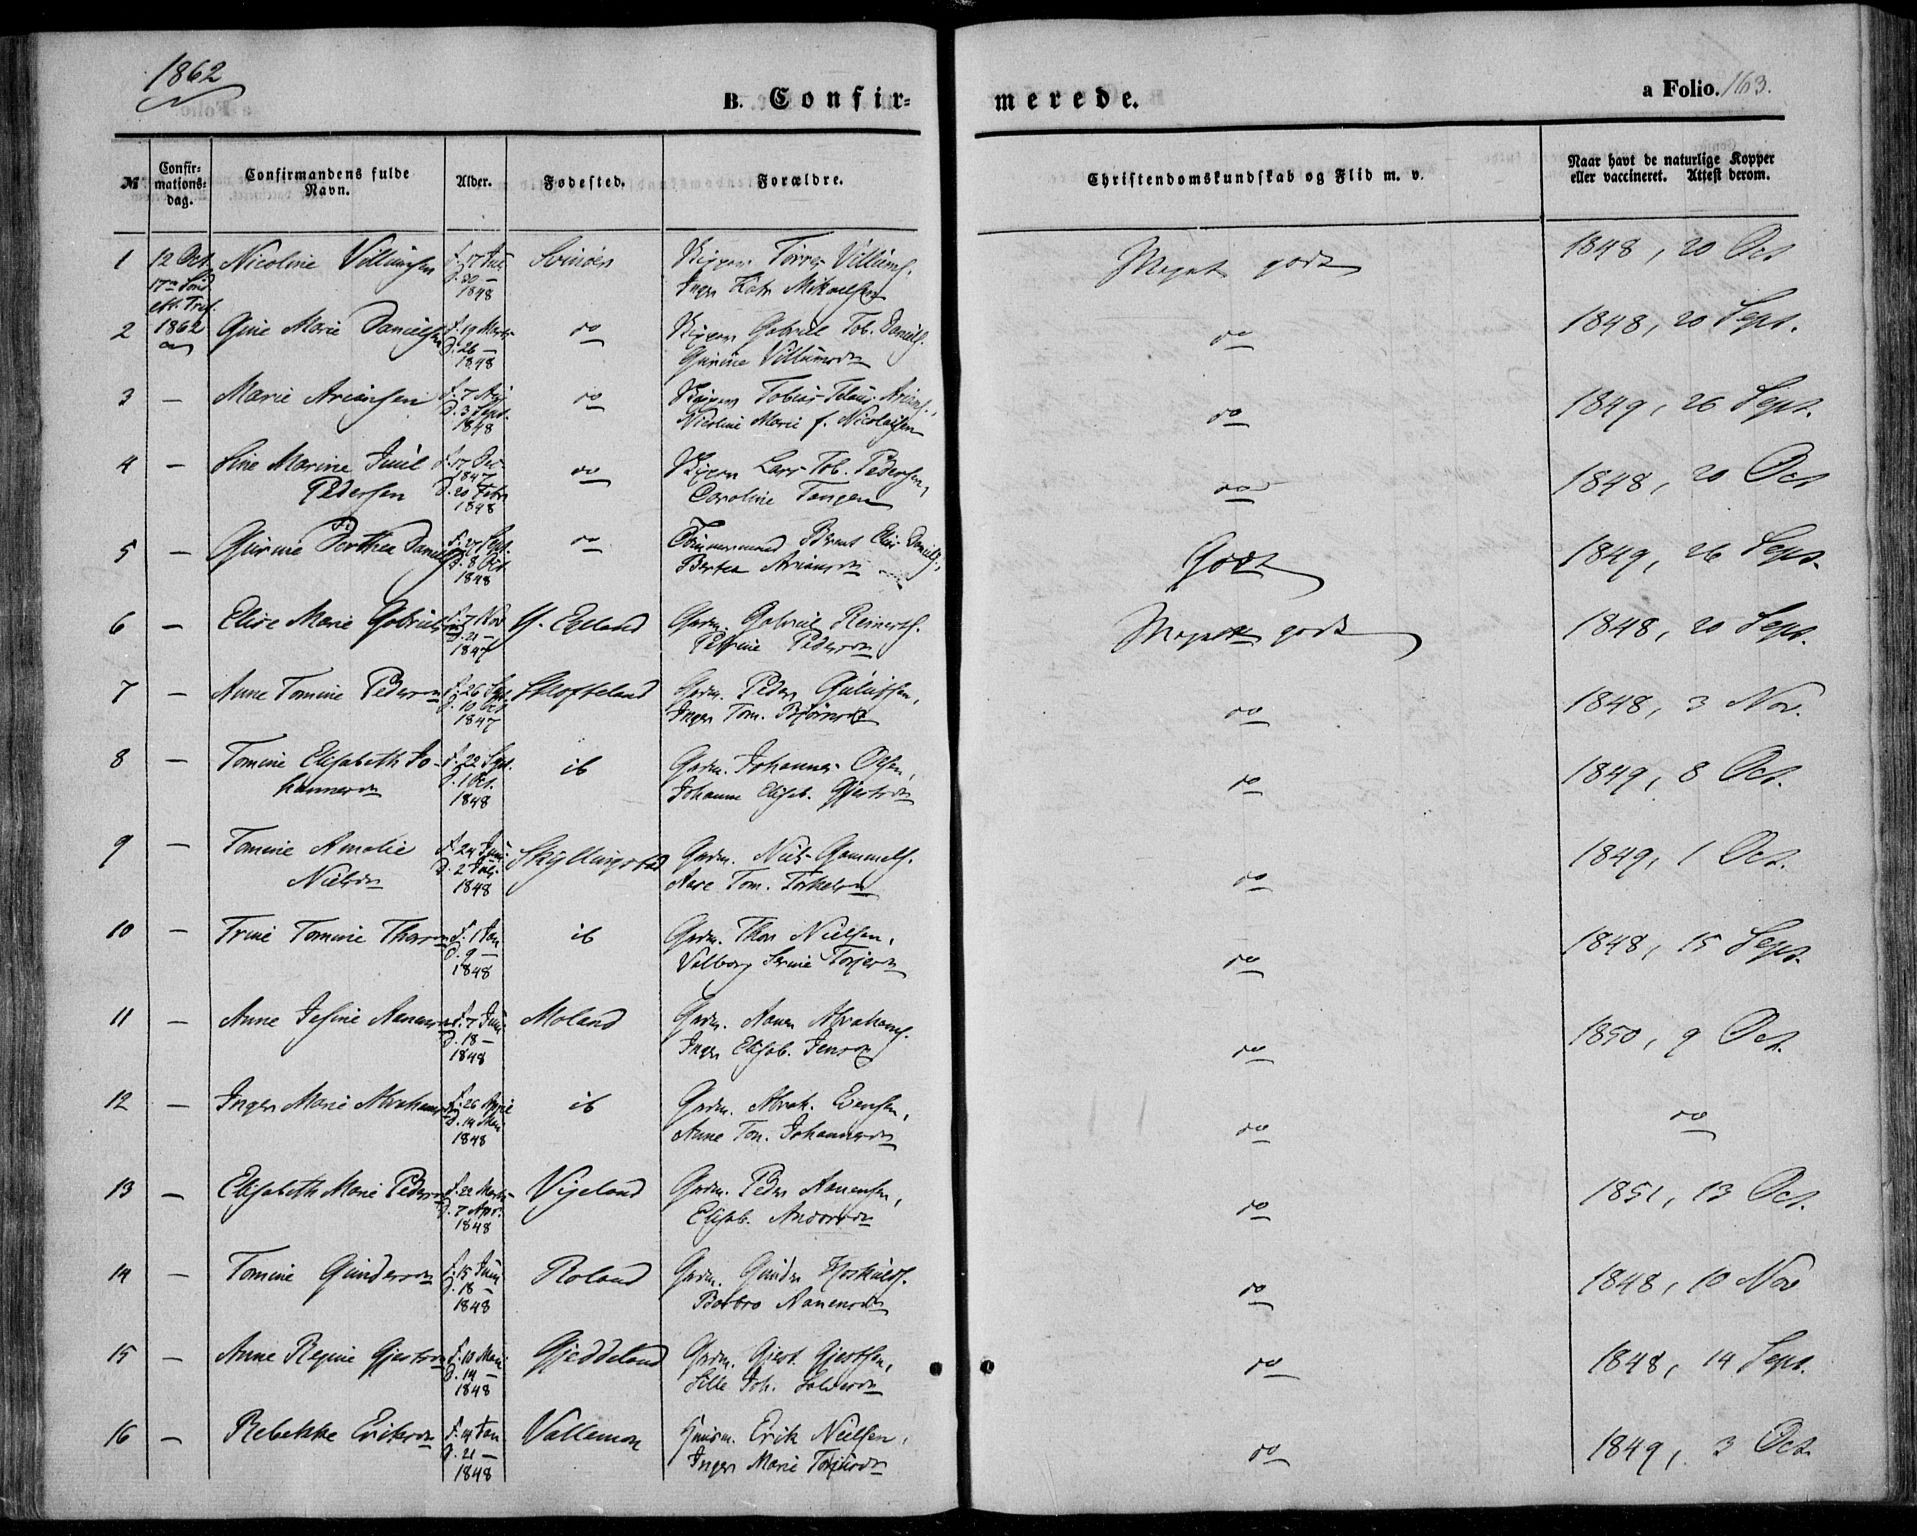 1862
B. Confir-
merede.
a Folio. 163.
№
Confir-
mations-
dag.
Confirmandens fulde
Navn.
Alder.
Fødested.
Forældre.
Christendomskundskab og Flid m. v.
Naar havt de naturlige Kopper
eller vaccineret. Attest derom.
1 12 Oct. Nicoline Villumsen f. 17 D. 20 – 1848 Svinøer Villums.
Inger Mikaelsen Meget godt 1848, 20 Oct
1862
2 Gine Marie Danielsen f. 19 Marts D. 26 – 1848 do Gabriel Tob. Daniels.
Gurine Villumsdn do 1848, 20 Sept.
3 – Marie Ariansen f. 7 Aug D. 3 Sept. 1848 do Tobias Arians.,
Nicoline Marie f. Nicolaisen do 1849, 26 Sept.
4 – Sine Marine Juul
Pedersen f. 17 Dec. 1847 D. 20 Febr 1848 do Lars Tob. Pedersen,
Caroline Tangen do 1848, 20 Oct
5 – Gurine Berthea Daniels f. 27 Sept. D. 8 Oct 1848 do Tømmermand Bernt Daniels.,
Bertea Ariansdn Godt 1849, 26 Sept.
6 – Elise Marie Gabrielsdn f. 7 Nov D. 21 – 1847 Y. Egeland Grdm. Gabriel Reinerts.
Petrine Pedersdn Meget godt 1848, 20 Sept.
7 – Anne Tomine Pedersdn f. 26 Sept. D. 10 Oct 1847 Skoffeland Grdm. Peder
Inger Tom. Bjørnsdn do 1848, 3 Nov.
8 – Tomine Elisabeth Jo-
hannesdn f. 22 Sept. D. 1 Oct. 1848 ib Grdm. Johannes Olsen,
Johanne Elisab. Gjertsdn do 1849, 8 Oct.
9 – Tomine Amalie
Nielsdn f. 24 Juni D. 2 Juli 1848 Skyllingstad Grdm. Niels Gammels.
Aase Tom. Torkelsdn do 1849, 1 Oct.
10 – Trine Tomine Thorsdn f. 1 Jan D. 9 – 1848 ib Grdm. Thor Nielsen,
Valborg Serine Torjersdn do 1848, 15 Sept.
11 – Anne Nanensdn f. 7 Juni D. 18 – 1848 Moland Grdm. Nanen Abrahams.
Inger Elisab. Jensdn do 1850, 9 Oct.
12 – Inger Marie Abrahamsdn f. 26 April D. 14 Mai 1848 ib Grdm. Abrah. Evensen,
Anne Ton. Johannesdn do do
13 – Elisabeth Marie Pedersdn f. 22 Marts D. 7 Apr. 1848 Vigeland Grdm. Peder Nanensen,
Elisab. Andersdn do 1851, 13 Oct.
14 – Tomine Gundersdn f. 15 Juni D. 18 – 1848 Roland Grdm. Gunder Hoskulds.
Barbro Nanensdn do 1848, 10 Nov
15 – Anne Regine Gjertsdn f. 10 Mai D. 14 – 1848 Gjeddeland Grdm. Gjert Gjertsen,
Sille Joh. Salvesdn do 1848, 14 Sept.
16 – Rebekke Eriksdn f. 14 Jan D. 21 – 1848 Vallemon Huusm. Erik Nielsen,
Inger Marie Torjusdn do 1849, 3 Oct.